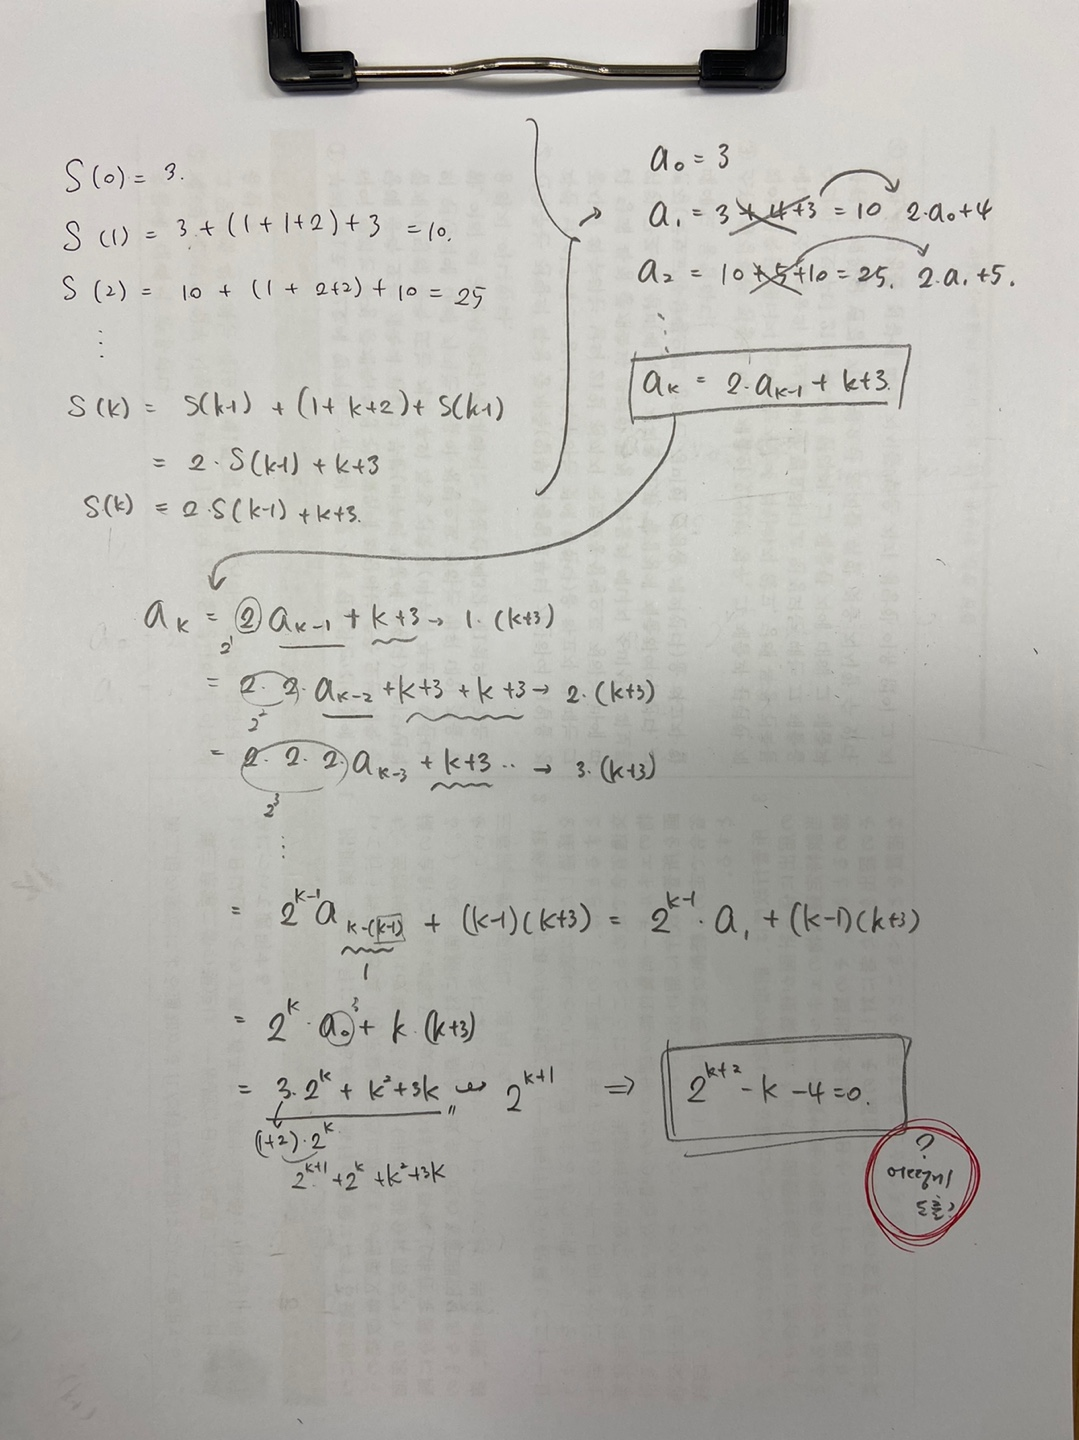 S(0) = 3.
S(1) = 3 + (1+1+2) + 3 = 10.
S(2) = 10 + (1 + 2+2) + 10 = 25
⋮
S(k) = S(k-1) + (1+ k+2) + S(k-1)
= 2 · S(k-1) + k+3
S(k) = 2·S(k-1) + k+3.
a₀ = 3
a₁ = 3 + 4 + 3 = 10 2·a₀+4
a₂ = 10 + 5 + 10 = 25. 2·a₁+5.
⋮
aₖ = 2·aₖ₋₁ + k+3.
aₖ = 2 aₖ₋₁ + k+3 → 1·(k+3)
2¹
= 2· 2· aₖ₋₂ + k+3 + k+3 → 2·(k+3)
2²
= 2· 2· 2· aₖ₋₃ + k+3 ·· → 3·(k+3)
2³
⋮
= 2^(k-1) a_(k-(k-1)) + (k-1)(k+3) = 2^(k-1) · a₁ + (k-1)(k+3)
1
= 2^k · a₀ + k·(k+3)
3
= 3·2^k + k²+3k 〃 ⇝ 2^(k+1) ⇒ 2^(k+2) - k - 4 = 0.
(1+2)·2^k
2^(k+1) + 2^k + k² + 3k
?
어떻게
도출?